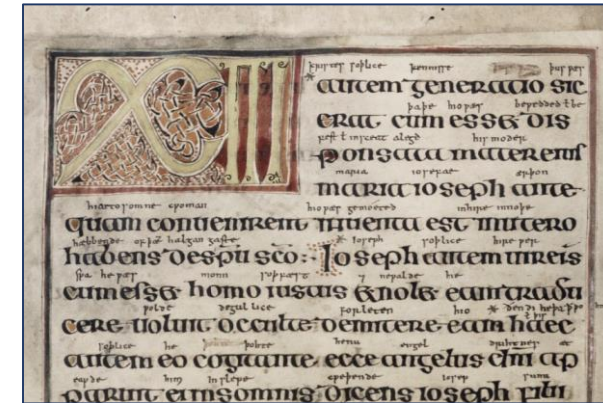 XPI
kristes soþlice kennisse þus wæs
autem generatio sic
þaþe hio wæs bewedded ꝉ be
erat cum ess& dis
fest ꝉ in sceat alegd his moder
ponsata mater eius
maria iosefae ærþon
maria ioseph ante
hiae tosomne cwoman hio wæs gemoeted in hire innoþe
quam conuenirent inuenta est inutero
hæbbende halgan gaste ioseph soþlice hire wer
habens despu sco: Ioseph autem uireis
swa he wæs monn soþfæst ⁊ newalde he
cum ess& homo iustus & nol& eam tradu
wolde degullice forleten hio
cere uoluit occulte demitere eam haec
soþlice he þohte henu engel drihtnes æt
autem eo cogitante ecce angelus dni ap
eawde him in slepe cweþende iosep sunu
paruit ei insomnis dicens ioseph fili